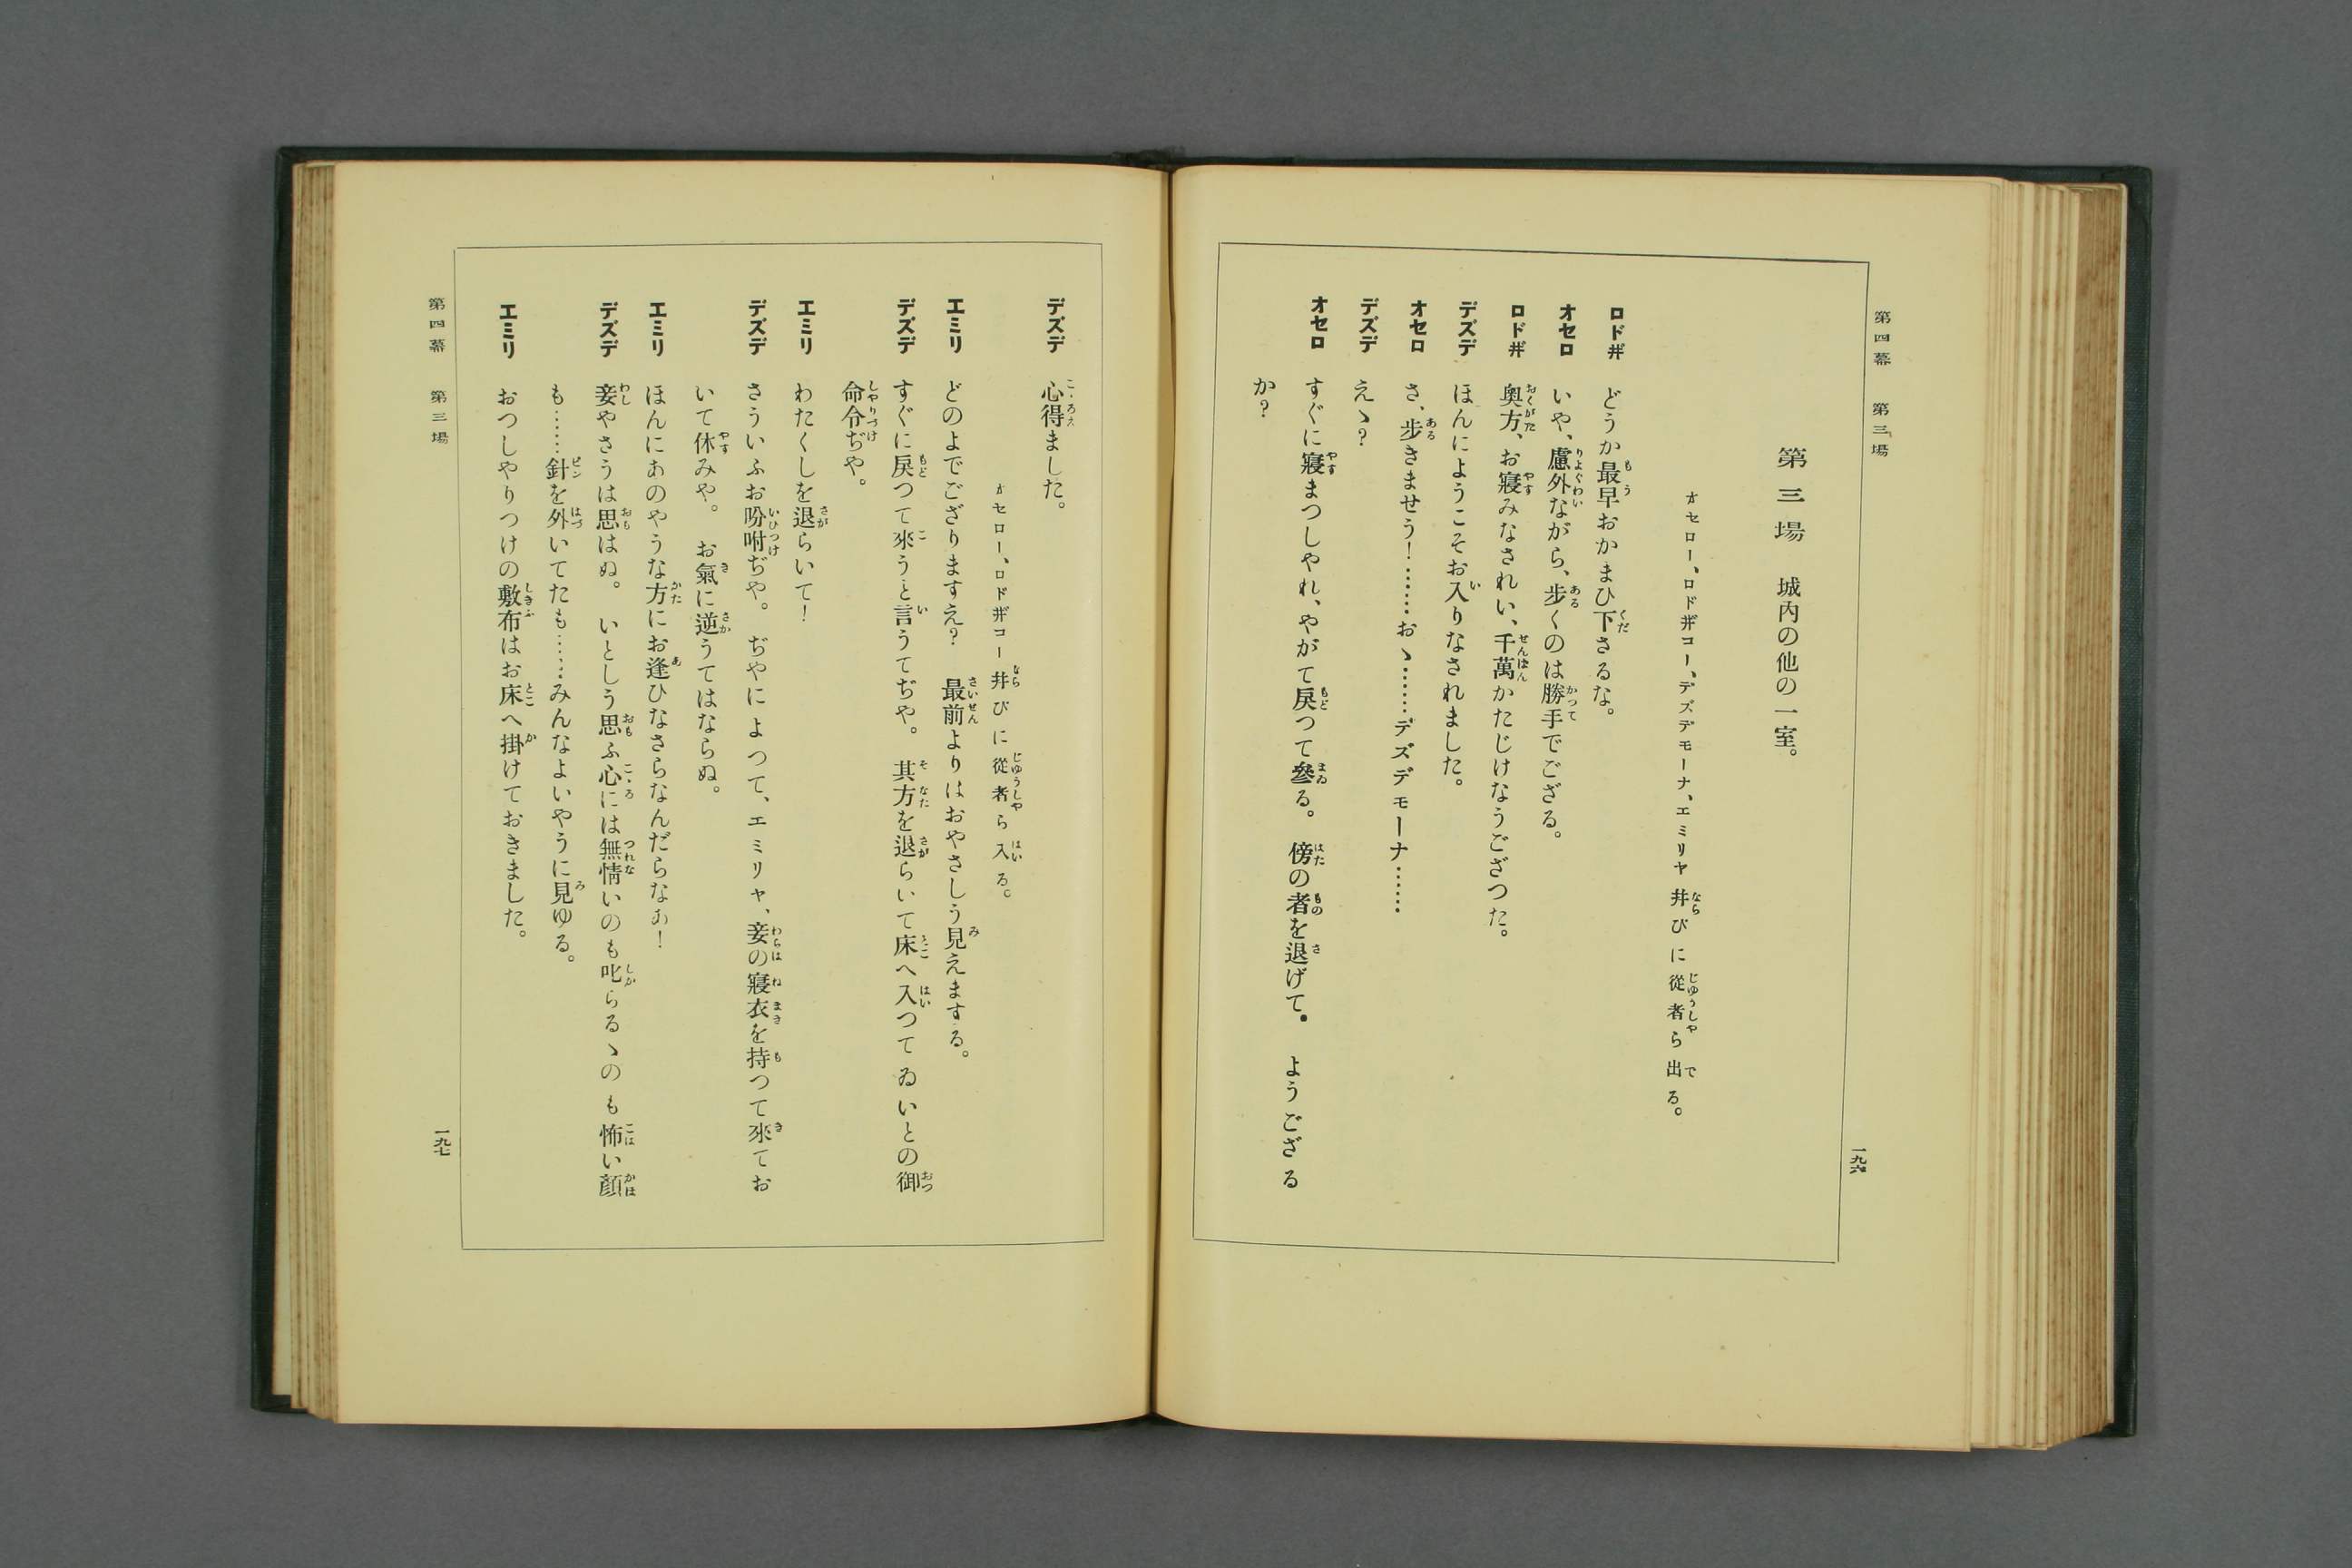 第四幕　第三場
一九六
第三場　城内の他の一室。
オセロー、ロドヰコー、デズデモーナ、エミリヤ井びに從者ら出る。
ロドヰ　どうか最早おかまひ下さるな。
オセロ　いや、慮外ながら、步くのは勝手でござる。
ロドヰ　奥方、お寢みなされい、千萬かたじけなうござつた。
デズデ　ほんにようこそお入りなされました。
オセロ　さ、步きませう！………おゝ………デズデモーナ……
デズデ　えゝ？
オセロ　すぐに寢まつしやれ、やがて戻つて參る。　傍の者を退げて。　ようござる
か？
デズデ　心得ました。
オセロー、ロドヰコー井びに從者ら入る。
エミリ　どのよでござりますえ？　最前よりはおやさしう見えまする。
デズデ　すぐに戻つて來うと言うてぢや。　其方を退らいて床へ入つてゐいとの御
命令ぢや。
エミリ　わたくしを退らいて！
デズデ　さういふお吩咐ぢや。　ぢやによつて、エミリヤ、妾の寢衣を持つて來てお
いて休みや。　お氣に逆うてはならぬ。
エミリ　ほんにあのやうな方にお逢ひなさらなんだらなあ！
デズデ　妾やさうは思はぬ。　いとしう思ふ心には無情いのも叱らるゝのも怖い顏
も……針を外いてたも……みんなよいやうに見ゆる。
エミリ　おつしやりつけの敷布はお床へ掛けておきました。
第四幕　第三場
一九七